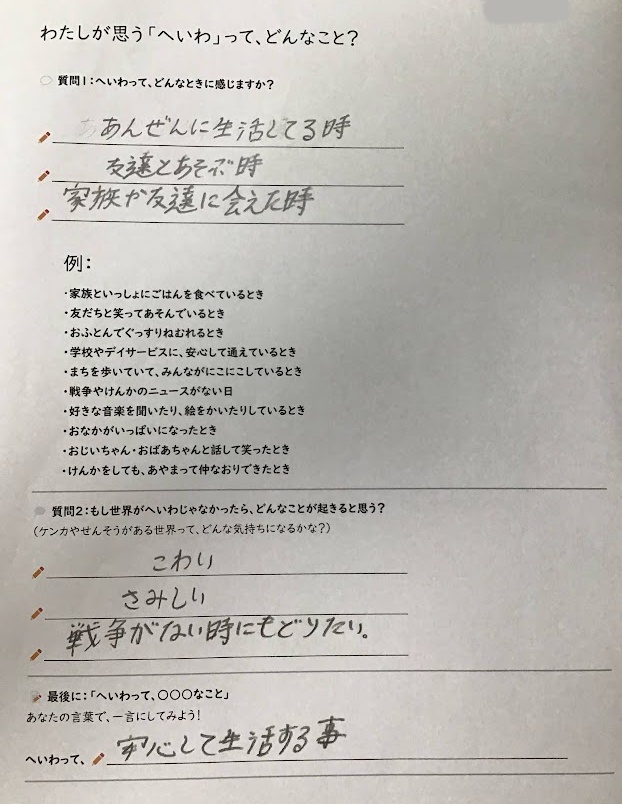 わたしが思う「へいわ」って、どんなこと?
質問1:へいわって、どんなときに感じますか?
あんぜんに生活してる時
友達とあそぶ時
家族か友達に会えた時
例:
・家族といっしょにごはんを食べているとき
・友だちと笑ってあそんでいるとき
・おふとんでぐっすりねむれるとき
・学校やデイサービスに、安心して通えているとき
・まちを歩いていて、みんながにこにこしているとき
・戦争やけんかのニュースがない日
・好きな音楽を聞いたり、絵をかいたりしているとき
・おなかがいっぱいになったとき
・おじいちゃん・おばあちゃんと話して笑ったとき
・けんかをしても、あやまって仲なおりできたとき
質問2:もし世界がへいわじゃなかったら、どんなことが起きると思う?
(ケンカやせんそうがある世界って、どんな気持ちになるかな?)
こわい
さみしい
戦争がない時にもどりたい。
最後に:「へいわって、〇〇〇なこと」
あなたの言葉で、一言にしてみよう!
へいわって、安心して生活する事